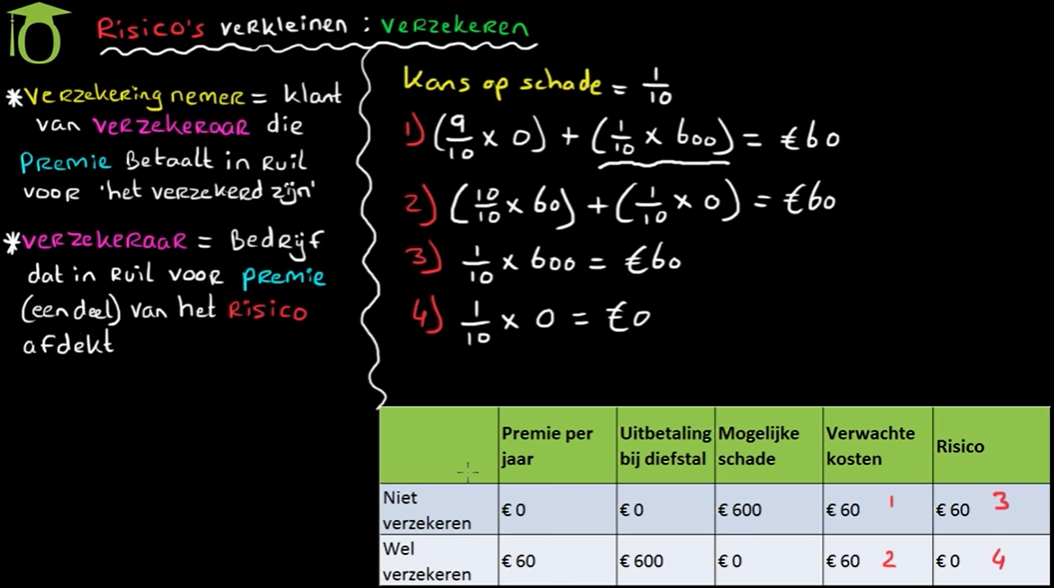 Risico's verkleinen : verzekeren
*Verzekering nemer = klant
van verzekeraar die
premie betaalt in ruil
voor 'het verzekerd zijn'
*verzekeraar = Bedrijf
dat in ruil voor premie
(een deel) van het risico
afdekt
Kans op schade = 1/10
1) (9/10 x 0) + (1/10 x 600) = €60
2) (10/10 x 60) + (1/10 x 0) = €60
3) 1/10 x 600 = €60
4) 1/10 x 0 = €0
Premie per jaar Uitbetaling bij diefstal Mogelijke schade Verwachte kosten Risico
Niet verzekeren € 0 € 0 € 600 € 60 1 € 60 3
Wel verzekeren € 60 € 600 € 0 € 60 2 € 0 4